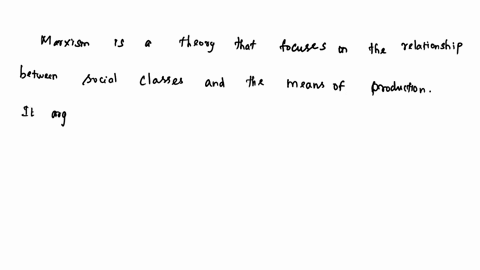 Marxism is a theory that focuses on the relationship
between social classes and the means of production.
It arg